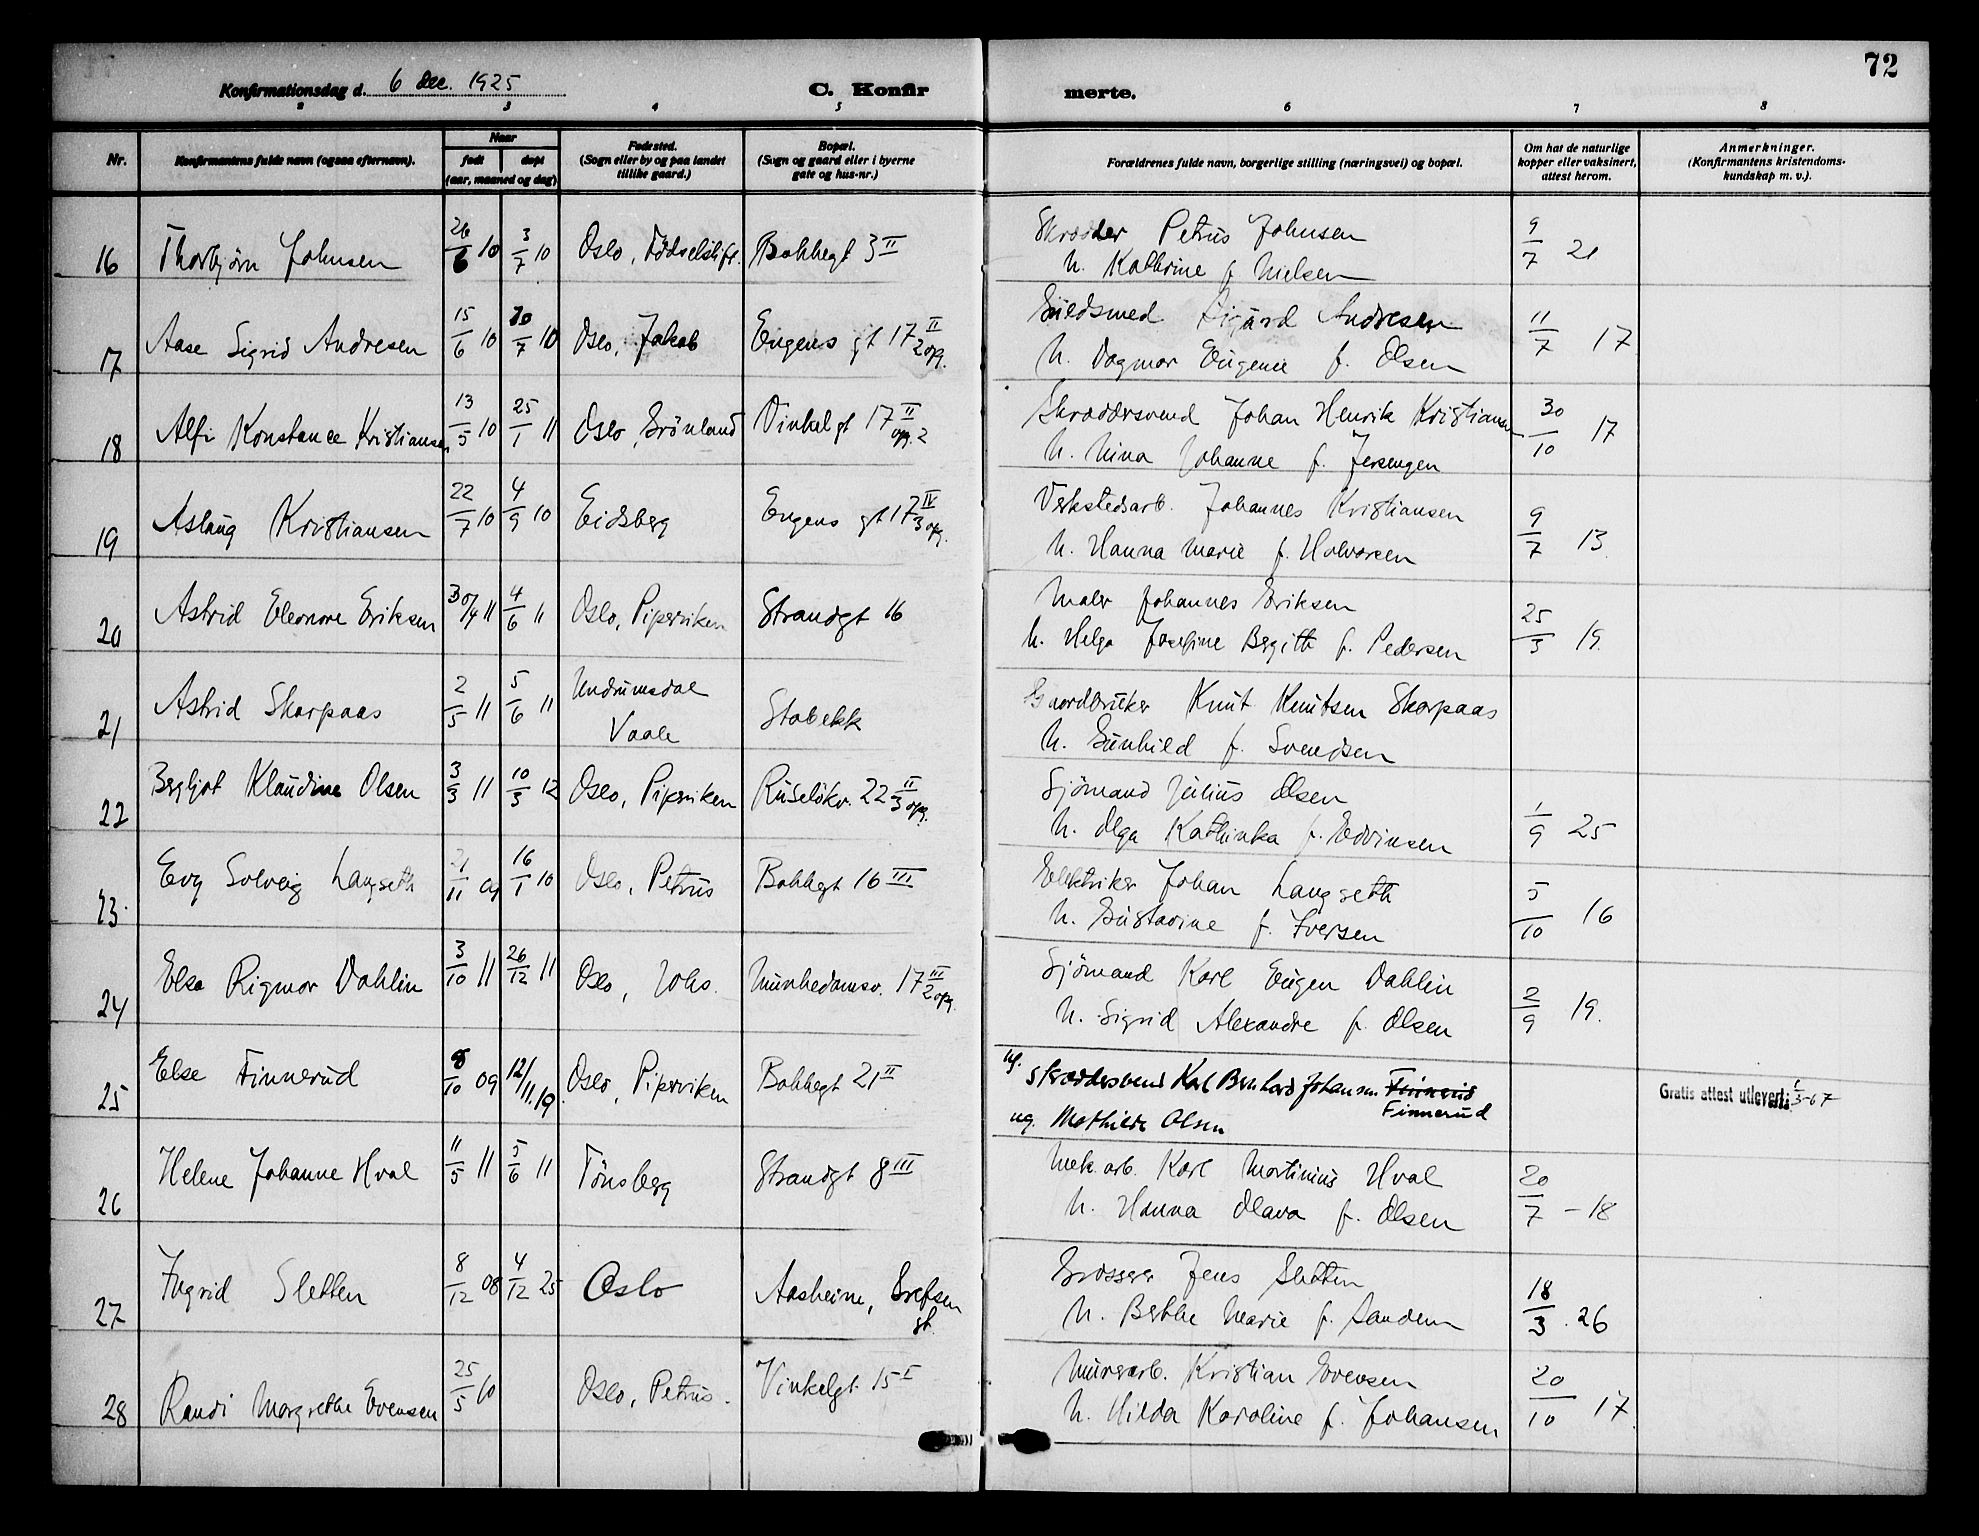 72
Konfirmationsdag d. 6 dec. 1925
C. Konfir merte.
2 3 4 5 6 7 8
Nr.
Konfirmantens fulde navn (ogsaa efternavn).
Naar
født døpt
(aar, maaned og dag)
Fødested.
(Sogn eller by og paa landet
tillike gaard.)
Bopæl.
(Sogn og gaard eller i byerne
gate og hus-nr.)
Forældrenes fulde navn, borgerlige stilling (næringsvei) og bopæl.
Om hat de naturlige
kopper eller vaksinert,
attest herom.
Anmerkninger.
(Konfirmantens kristendoms-
kundskap m. v.).
16 Thorbjørn Johnsen 26/6 10 3/7 10 Oslo, Fødselstift. Bakkegt 3 II
Skrædder Petrus Johnsen
h. Kathrine f Nielsen
9/7 21
17 Aase Sigrid Andresen 15/6 10 30/7 10 Oslo, Jakob Engens gt 17 II 2 opg.
Guldsmed Sigurd Andresen
h. Dagmar Eugenie f. Olsen
11/7 17
18 Alfi Konstance Kristiansen 13/5 10 25/1 11 Oslo, Grönland Vinkelgt 17 II opg. 2
Skræddersvend Johan Henrik Kristiansen
h. Nina Johanne f. Jersengen
30/10 17
19 Aslaug Kristiansen 22/7 10 4/9 10 Eidsberg Engens gt 17 IV 3 opg.
Verkstedsarb. Johannes Kristiansen
h. Hanna Marie f. Halvorsen
9/7 13
20 Astrid Eleonore Eriksen 30/4 11 4/6 11 Oslo, Piperviken Strandgt 16
Maler Johannes Eriksen
h. Helga Josefine Bergith f. Pedersen
25/3 19.
21 Astrid Skarpaas 2/5 11 5/6 11 Undrumsdal
Vaale Stabekk
Gaardbruker Knut Knutsen Skarpaas
h. Gunhild f. Svendsen
22 Bergljot Klaudine Olsen 3/3 11 10/3 12 Oslo, Piperviken Ruseløkv. 22 II 3 opg.
Sjömand Julius Olsen
h. Olga Kathinka f. Edvinsen
1/9 25
23 Evy Solveig Langseth 21/11 09 16/1 10 Oslo, Petrus Bakkegt 16 III
Elektriker Johan Langseth
h. Gustavine f. Iversen
5/10 16
24 Elsa Rigmor Dahlin 3/10 11 26/12 11 Oslo, Johs. Munkedamsv. 17 III 2 opg.
Sjömand Karl Eugen Dahlin
h. Sigrid Alexandre f. Olsen
2/9 19.
25 Else Finnerud 8/10 09 12/11.19. Oslo, Piperviken Bakkegt 21 II
uf. skræddersvend Karl Bernhard Johansen Finnerud
Finnerud
ug. Mathilde Olsen
Gratis attest utlevert: 1/3-67
26 Helene Johanne Hval 11/5 11 5/6 11 Tönsberg Strandgt 8 III
Mek. arb. Karl Martinius Hval
h. Hanna Olava f. Olsen
20/7 - 18
27 Ingrid Sletten 8/12 08 4/12 25 Oslo Aasheim, Grefsen
st.
Grosserer Jens Sletten
h. Berthe Marie f. Sandem
18/3. 26
28 Randi Margrethe Evensen 25/5 10 Oslo, Petrus. Vinkelgt. 15 I
Murerarb. Kristian Evensen
h. Hilda Karoline f. Johansen
20/10 17.